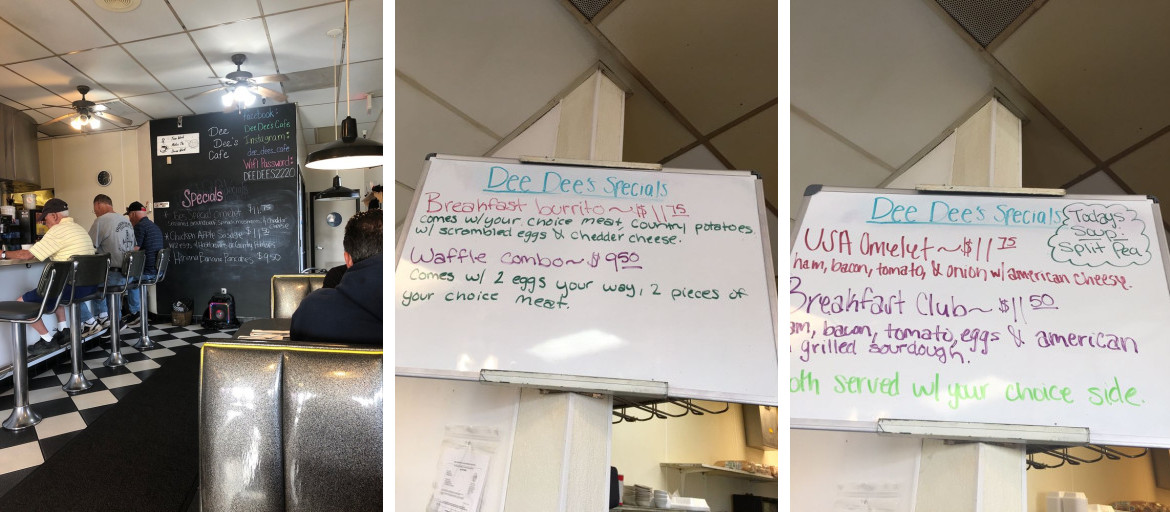 Dee
Dee's
Cafe
Facebook:
DeeDeesCafe
Instagram:
dee_dees_cafe
Wifi Password:
DEEDEES2220
Specials
Omelet
Chicken Apple Sausage
Banana Pancakes $9.50
Dee Dee's Specials
Breakfast burrito~ $11.75
comes w/your choice meat, country potatoes
w/ scrambled eggs & chedder cheese.
Waffle combo~ $9.50
Comes w/ 2 eggs your way, 2 pieces of
your choice meat.
Dee Dee's Specials
Todays
Soup:
Split Pea
USA Omelet~ $11.75
ham, bacon, tomato, & onion w/american cheese.
Breakfast Club~ $11.50
am, bacon, tomato, eggs & american
grilled sourdough.
oth served w/ your choice side.